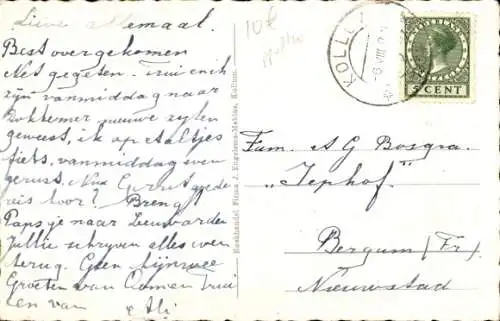 Lieve allemaal.
Best overgekomen
Net gegeten. Trui en ik
zijn vanmiddag naar
Dokkumer nieuwe zylen
geweest, ik op Aaltjes
fiets, vanmiddag even
gerust. Nou Gp goede
reis hoor? Breng
Paps je naar Leeuwarden
Jullie schryven alles wel
terug. Geen
Groeten van Oom en Trui
en van
Ali
10c
KOLLUM
-6 VIII
NEDERLAND
5 CENT
Boekhandel Firma J. Kollum.
Fam. A G Bosgra.
"Jephof"
Bergum (Fr)
Nieuwstad